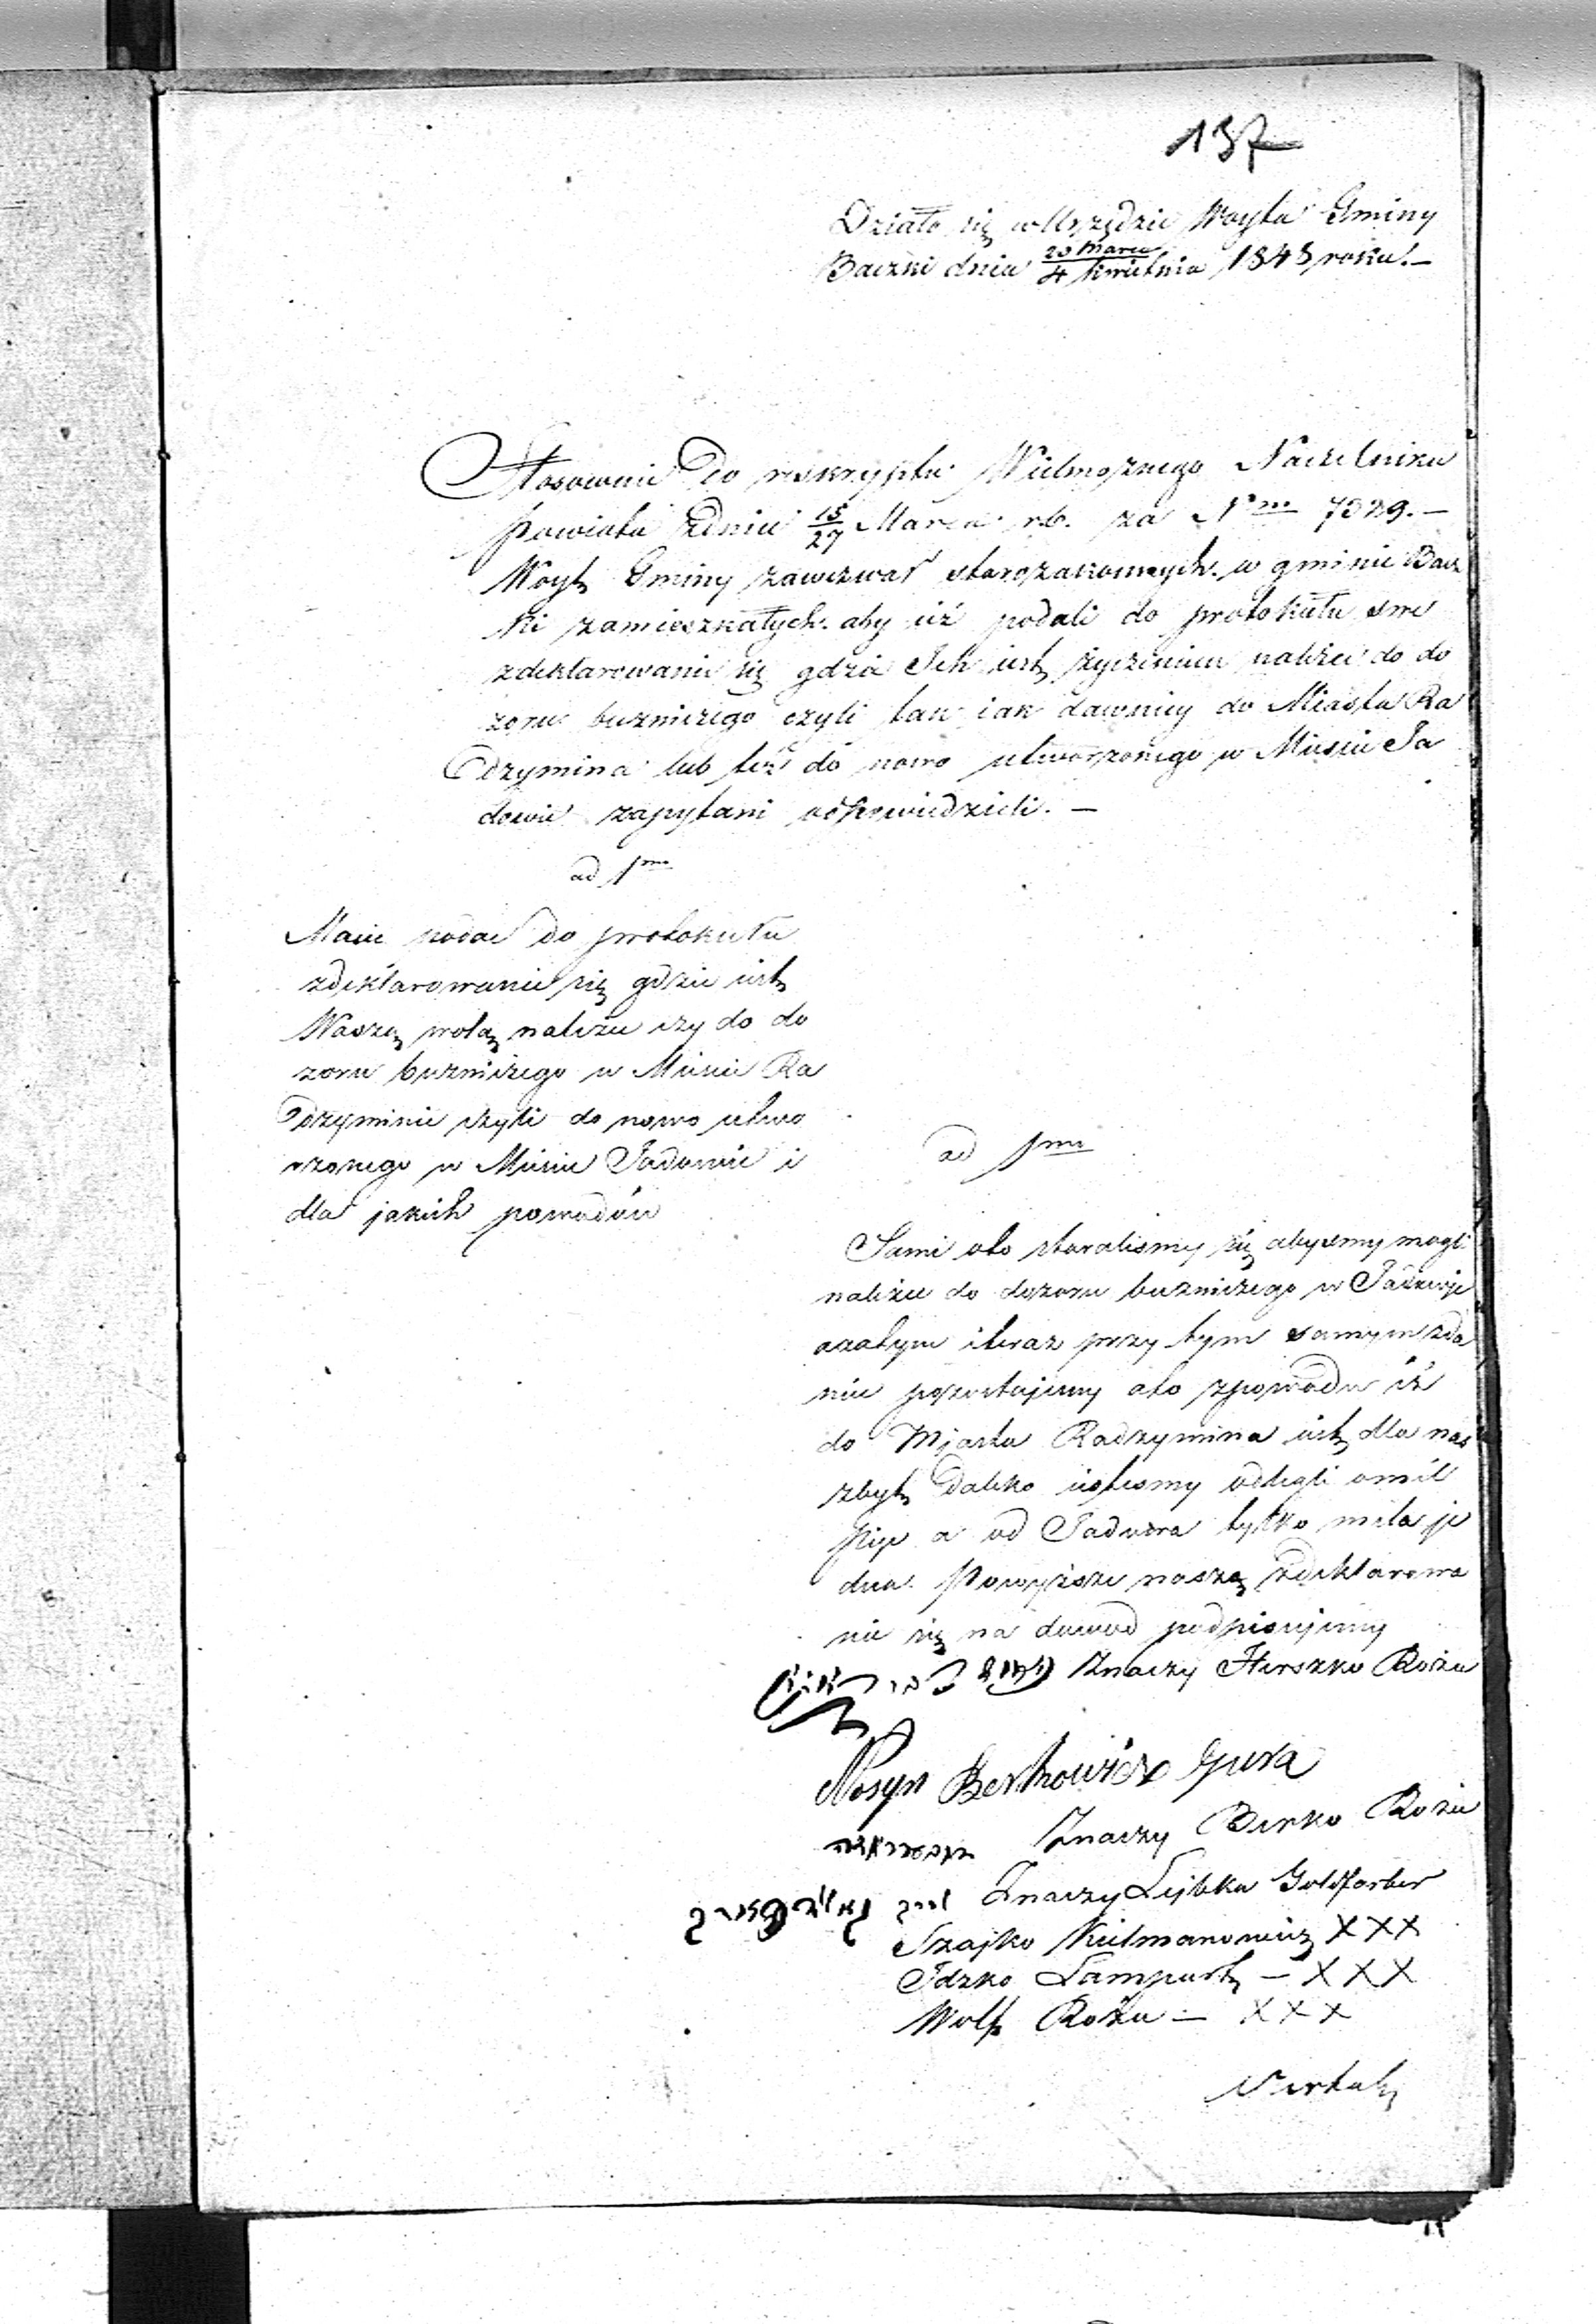 137
Działo się w Urzędzie Woyta Gminy
Baczki dnia 23 Marca / 4 Kwietnia 1848 roku. —
Stosownie do reskryptu Wielmożnego Naczelnika
Powiatu z dnia 15/27 Marca r.b. za Nrm 7029. —
Woyt Gminy zawezwał starozakonnych w gminie Bacz
ki zamieszkałych. aby iiż podali do protokułu swe
zdeklarowanie się gdzie Ich iest życzeniem należeć do do
zoru bużniczego czyli tak iak dawniey do Miasta Ra
dzymina lub też do nowo utworzonego w Mieście Ja
dowie zapytani odpowiedzieli. —
ad 1mo
Macie podać do protokułu
zdeklarowanie się gdzie iest
Waszą wolą należeć czy do do
zoru bużniczego w Mieście Ra
dzyminie czyli do nowo utwo
rzonego w Mieście Jadowie i
dla jakich powodów
ad 1mo
Sami oto staraliśmy się abyśmy mogli
należeć do dozoru bużniczego w Jadowie
a zatym i teraz przy tym samym zda
niu pozostajemy a to z powodu iż
do Mjasta Radzymina iest dla nas
zbyt daleko iesteśmy odlegli o mil
pięć a od Jadowa tylko mila je
dna. Powyższe naszą zdeklarowa
nie się na dowód podpisujemy
Znaczy Herszko Roza
Nosyn Berkowicz Gura
Znaczy Berko Roza
Znaczy Lejbka Goldfarber
Szajko Kielmanowicz XXX
Idzko Lampart — XXX
Wolf Roza — XXX